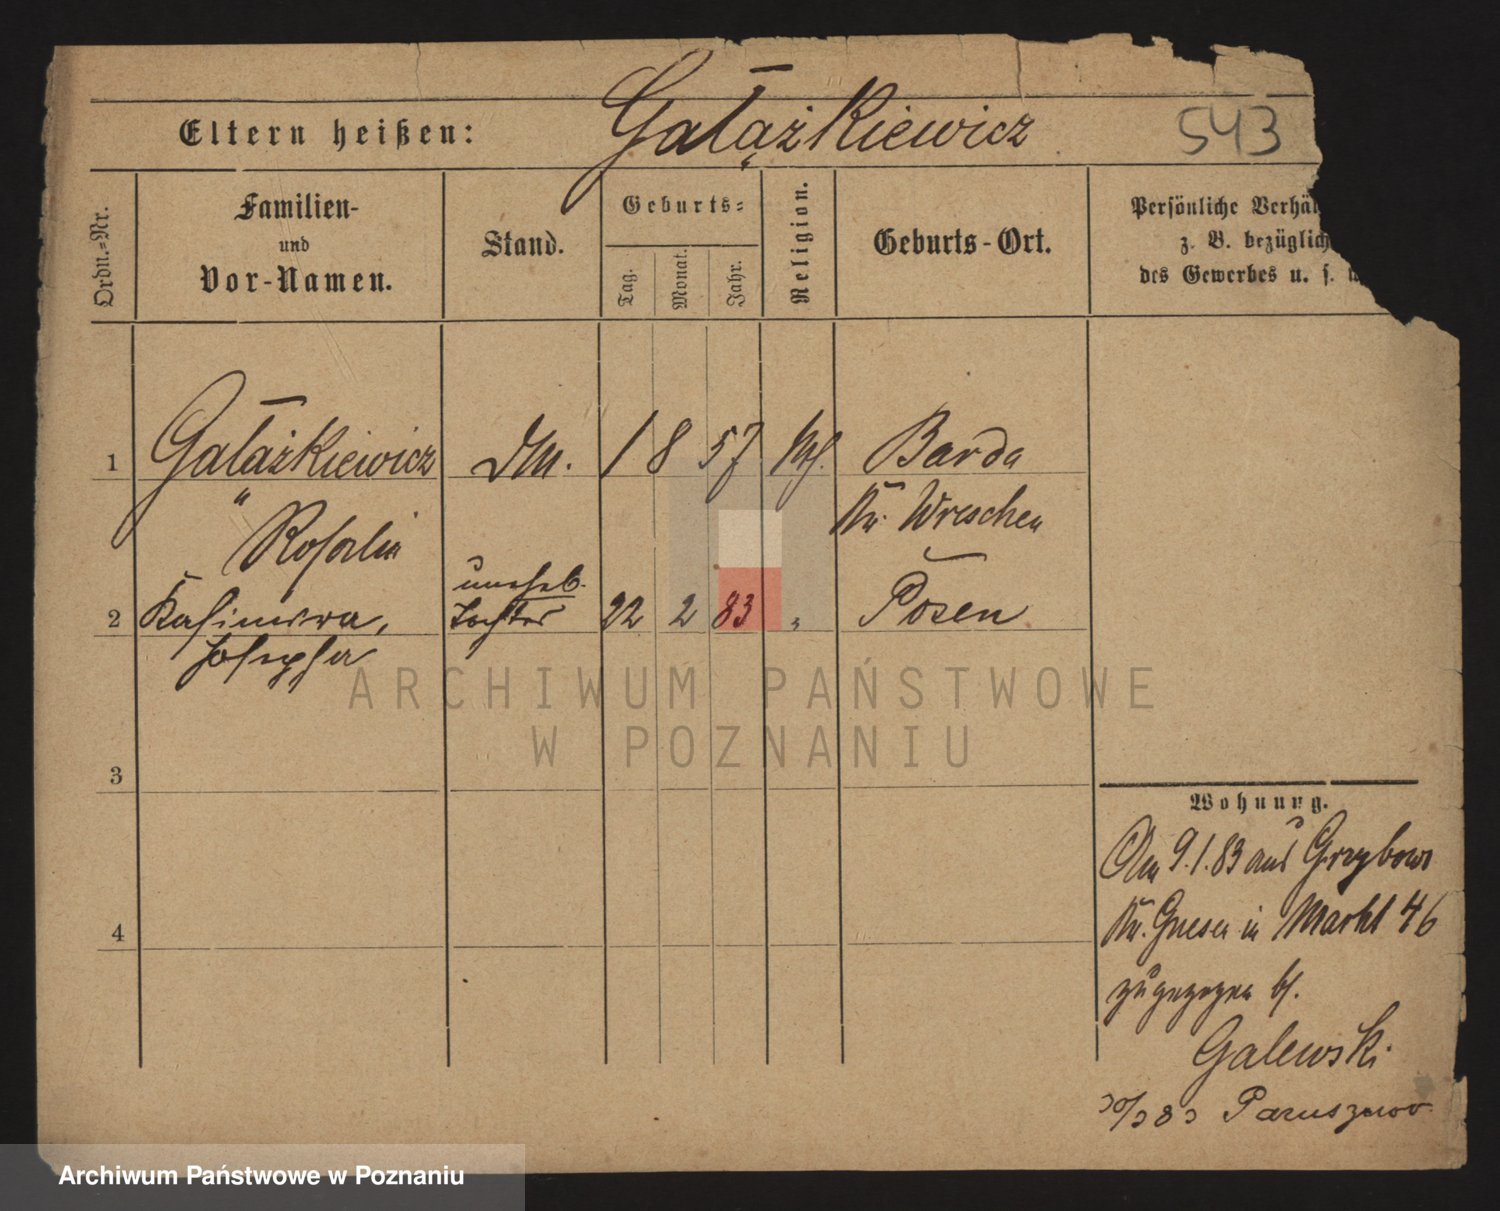 Gałązkiewicz
543
Eltern heißen:
Ordn.-Nr.
Familien-
und
Vor-Namen.
Stand.
Geburts-
Tag.
Monat.
Jahr.
Religion.
Geburts-Ort.
Persönliche Verhäl
z. B. bezüglich
des Gewerbes u. s.
1 Gałązkiewicz DM. 1 8 57 Barda
" Rosalia Kr. Wreschen
unehel.
2 Kasimira, Tochter 22 2 83 " Posen
Josepha
3
4
Wohnung.
Am 9.1.83 aus Grzybowo
Kr. Gnesen in Markt 46
zugezogen bs.
Galewski
30/3 83 Paruszewo
ARCHIWUM PAŃSTWOWE
W POZNANIU
Archiwum Państwowe w Poznaniu